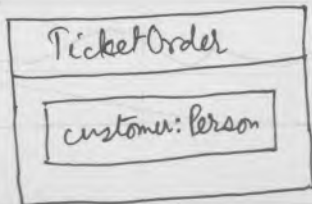 TicketOrder
customer: Person